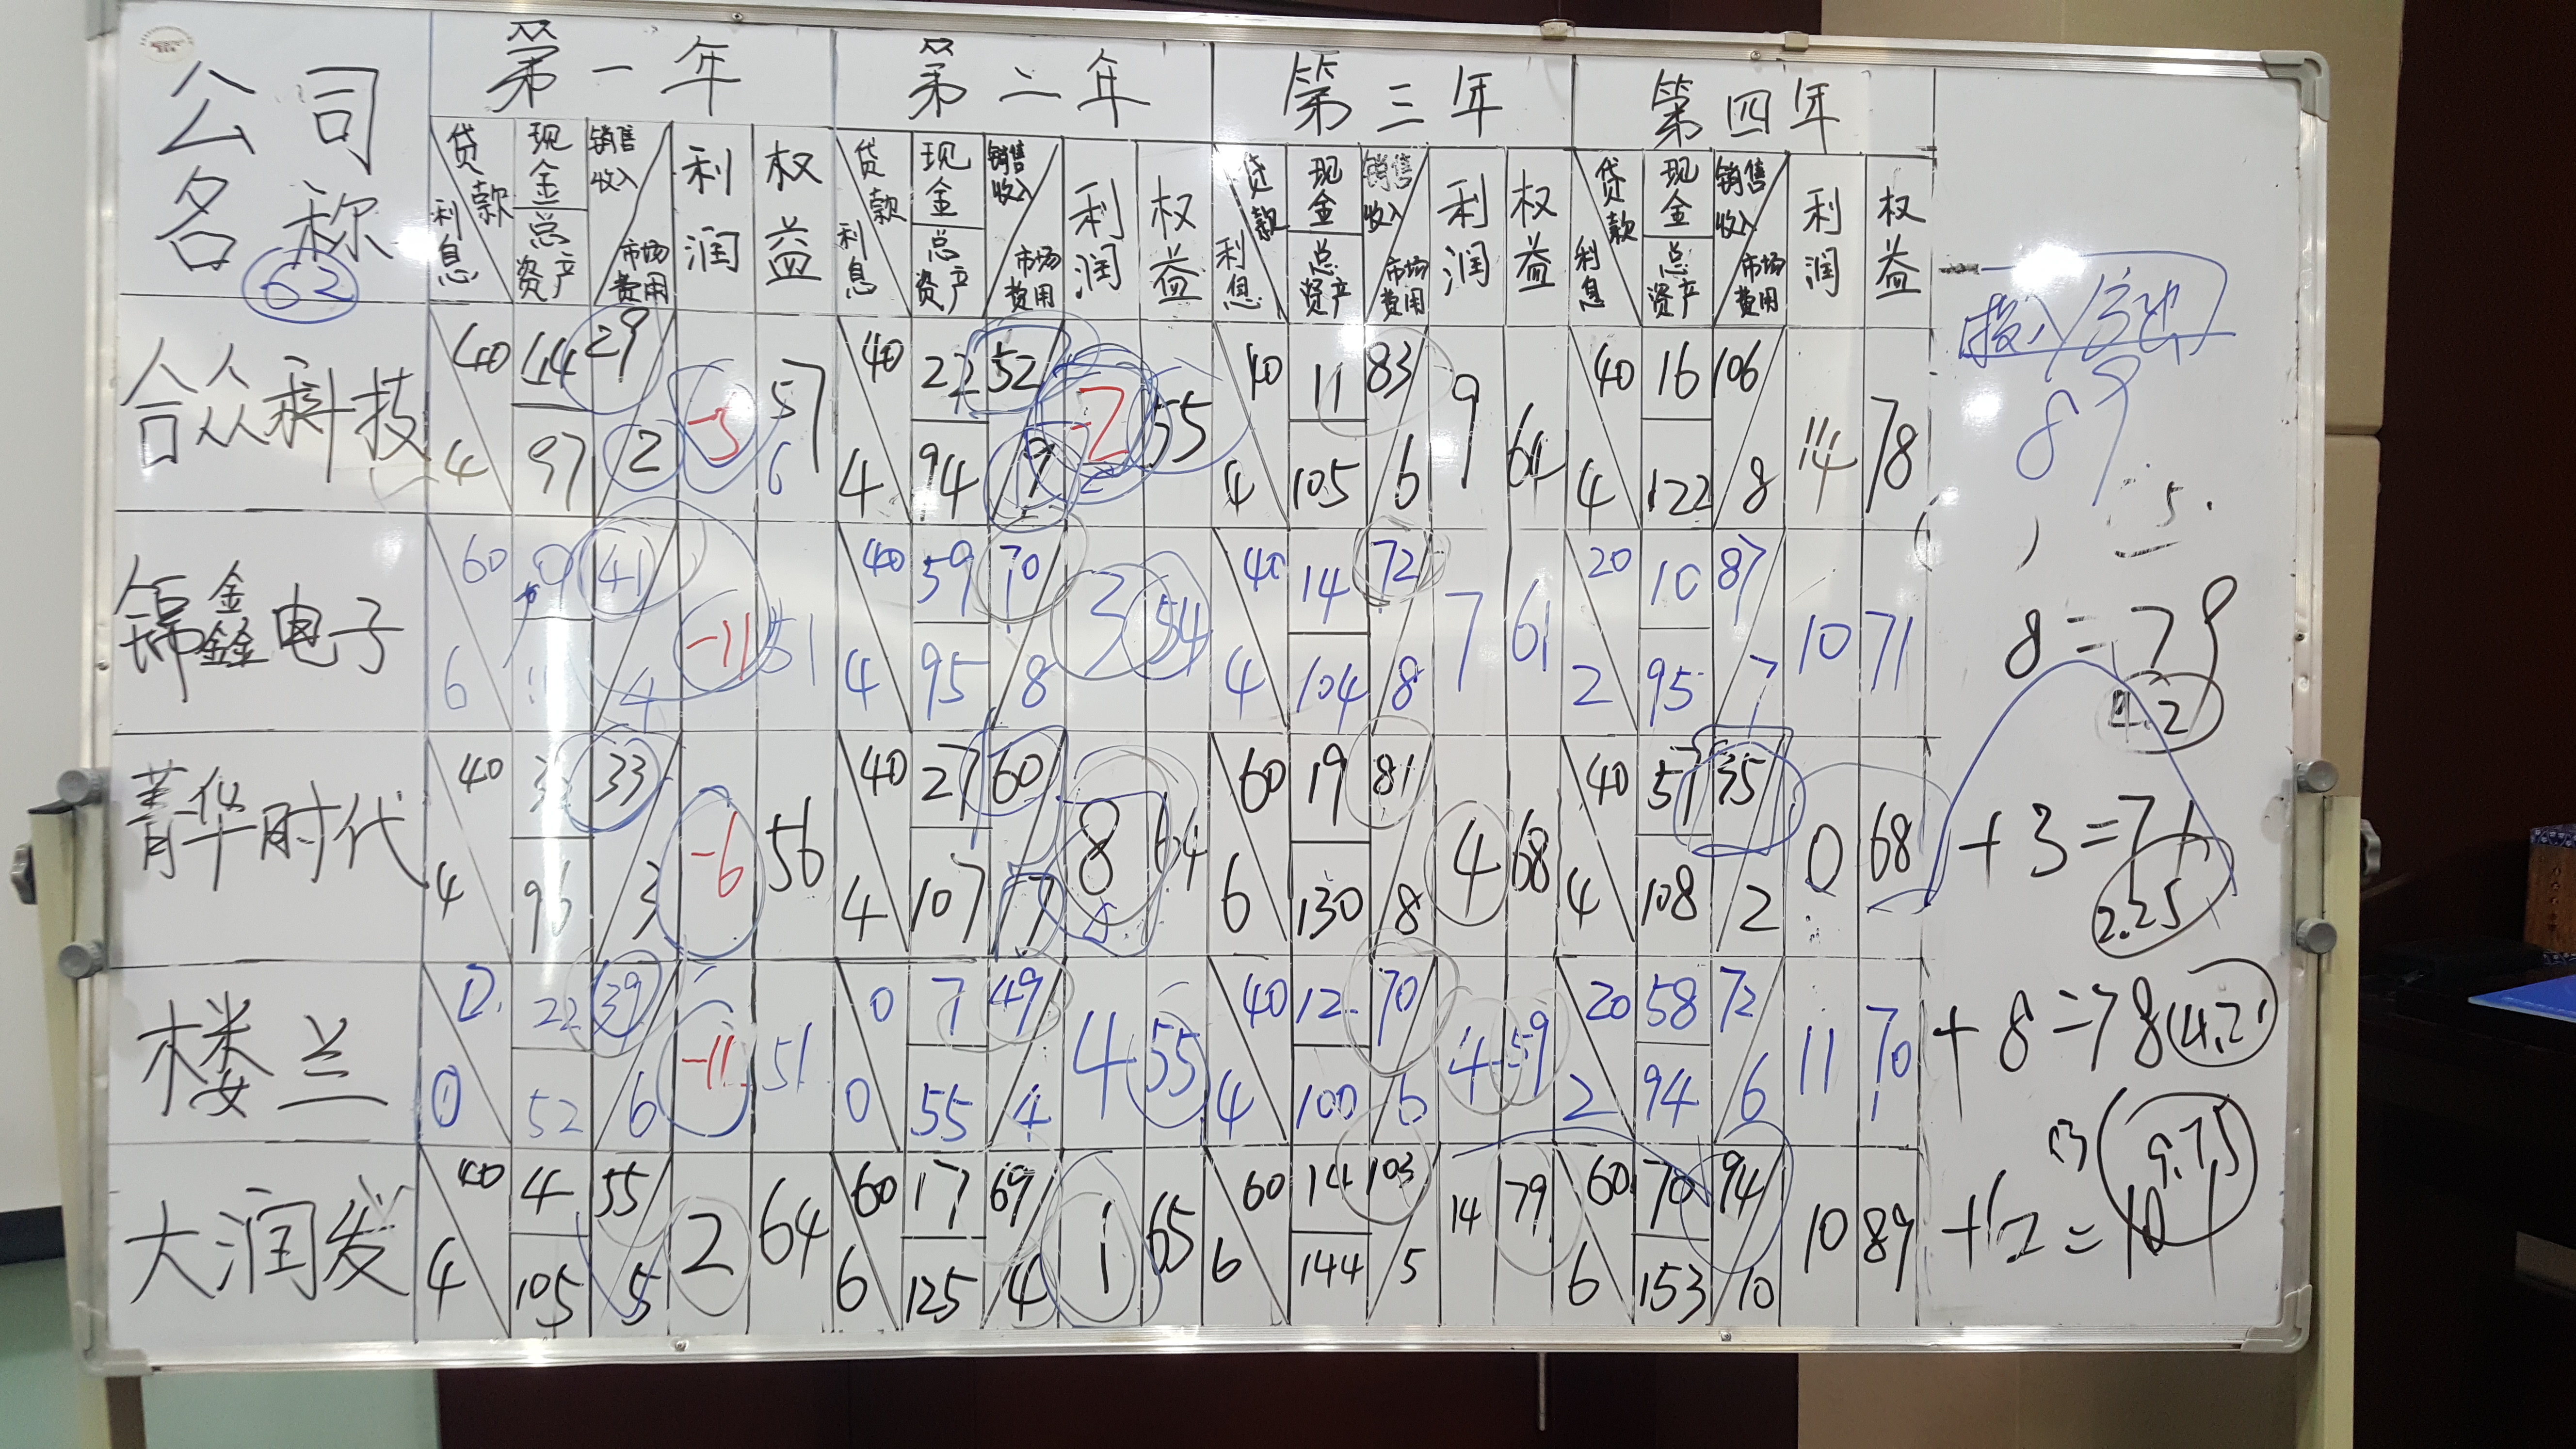 公司 第一年 第二年 第三年 第四年
名称 贷款 利息 现金 总资产 销售收入 市场费用 利润 权益 贷款 利息 现金 总资产 销售收入 市场费用 利润 权益 贷款 利息 现金 总资产 销售收入 市场费用 利润 权益 贷款 利息 现金 总资产 销售收入 市场费用 利润 权益
62
投入/
89
合众科技 40 14 29 57 40 22 52 -2 55 40 11 83 9 64 40 16 106 14 78
4 97 2 6 4 94 9 4 105 6 4 122 8
5.
锦鑫电子 60 41 -11 51 40 59 70 3 54 40 14 72 7 61 20 10 87 10 71
6 4 4 95 8 4 104 8 2 95 7
8=79
4.2
菁华时代 40 33 -6 56 40 27 60 8 64 60 19 81 4 68 40 57 35 0 68
4 96 3 4 107 7 6 130 8 4 108 2
+3=71
2.25
楼兰 22 39 -11 51 0 7 49 4 55 40 12 70 4 59 20 58 72 11 70
0 52 6 0 55 4 4 100 6 2 94 6
+8=78
大润发 40 4 55 2 64 60 17 69 1 65 60 14 103 14 79 60 70 94 10 89
4 105 5 6 125 4 6 144 5 6 153 10
9.75